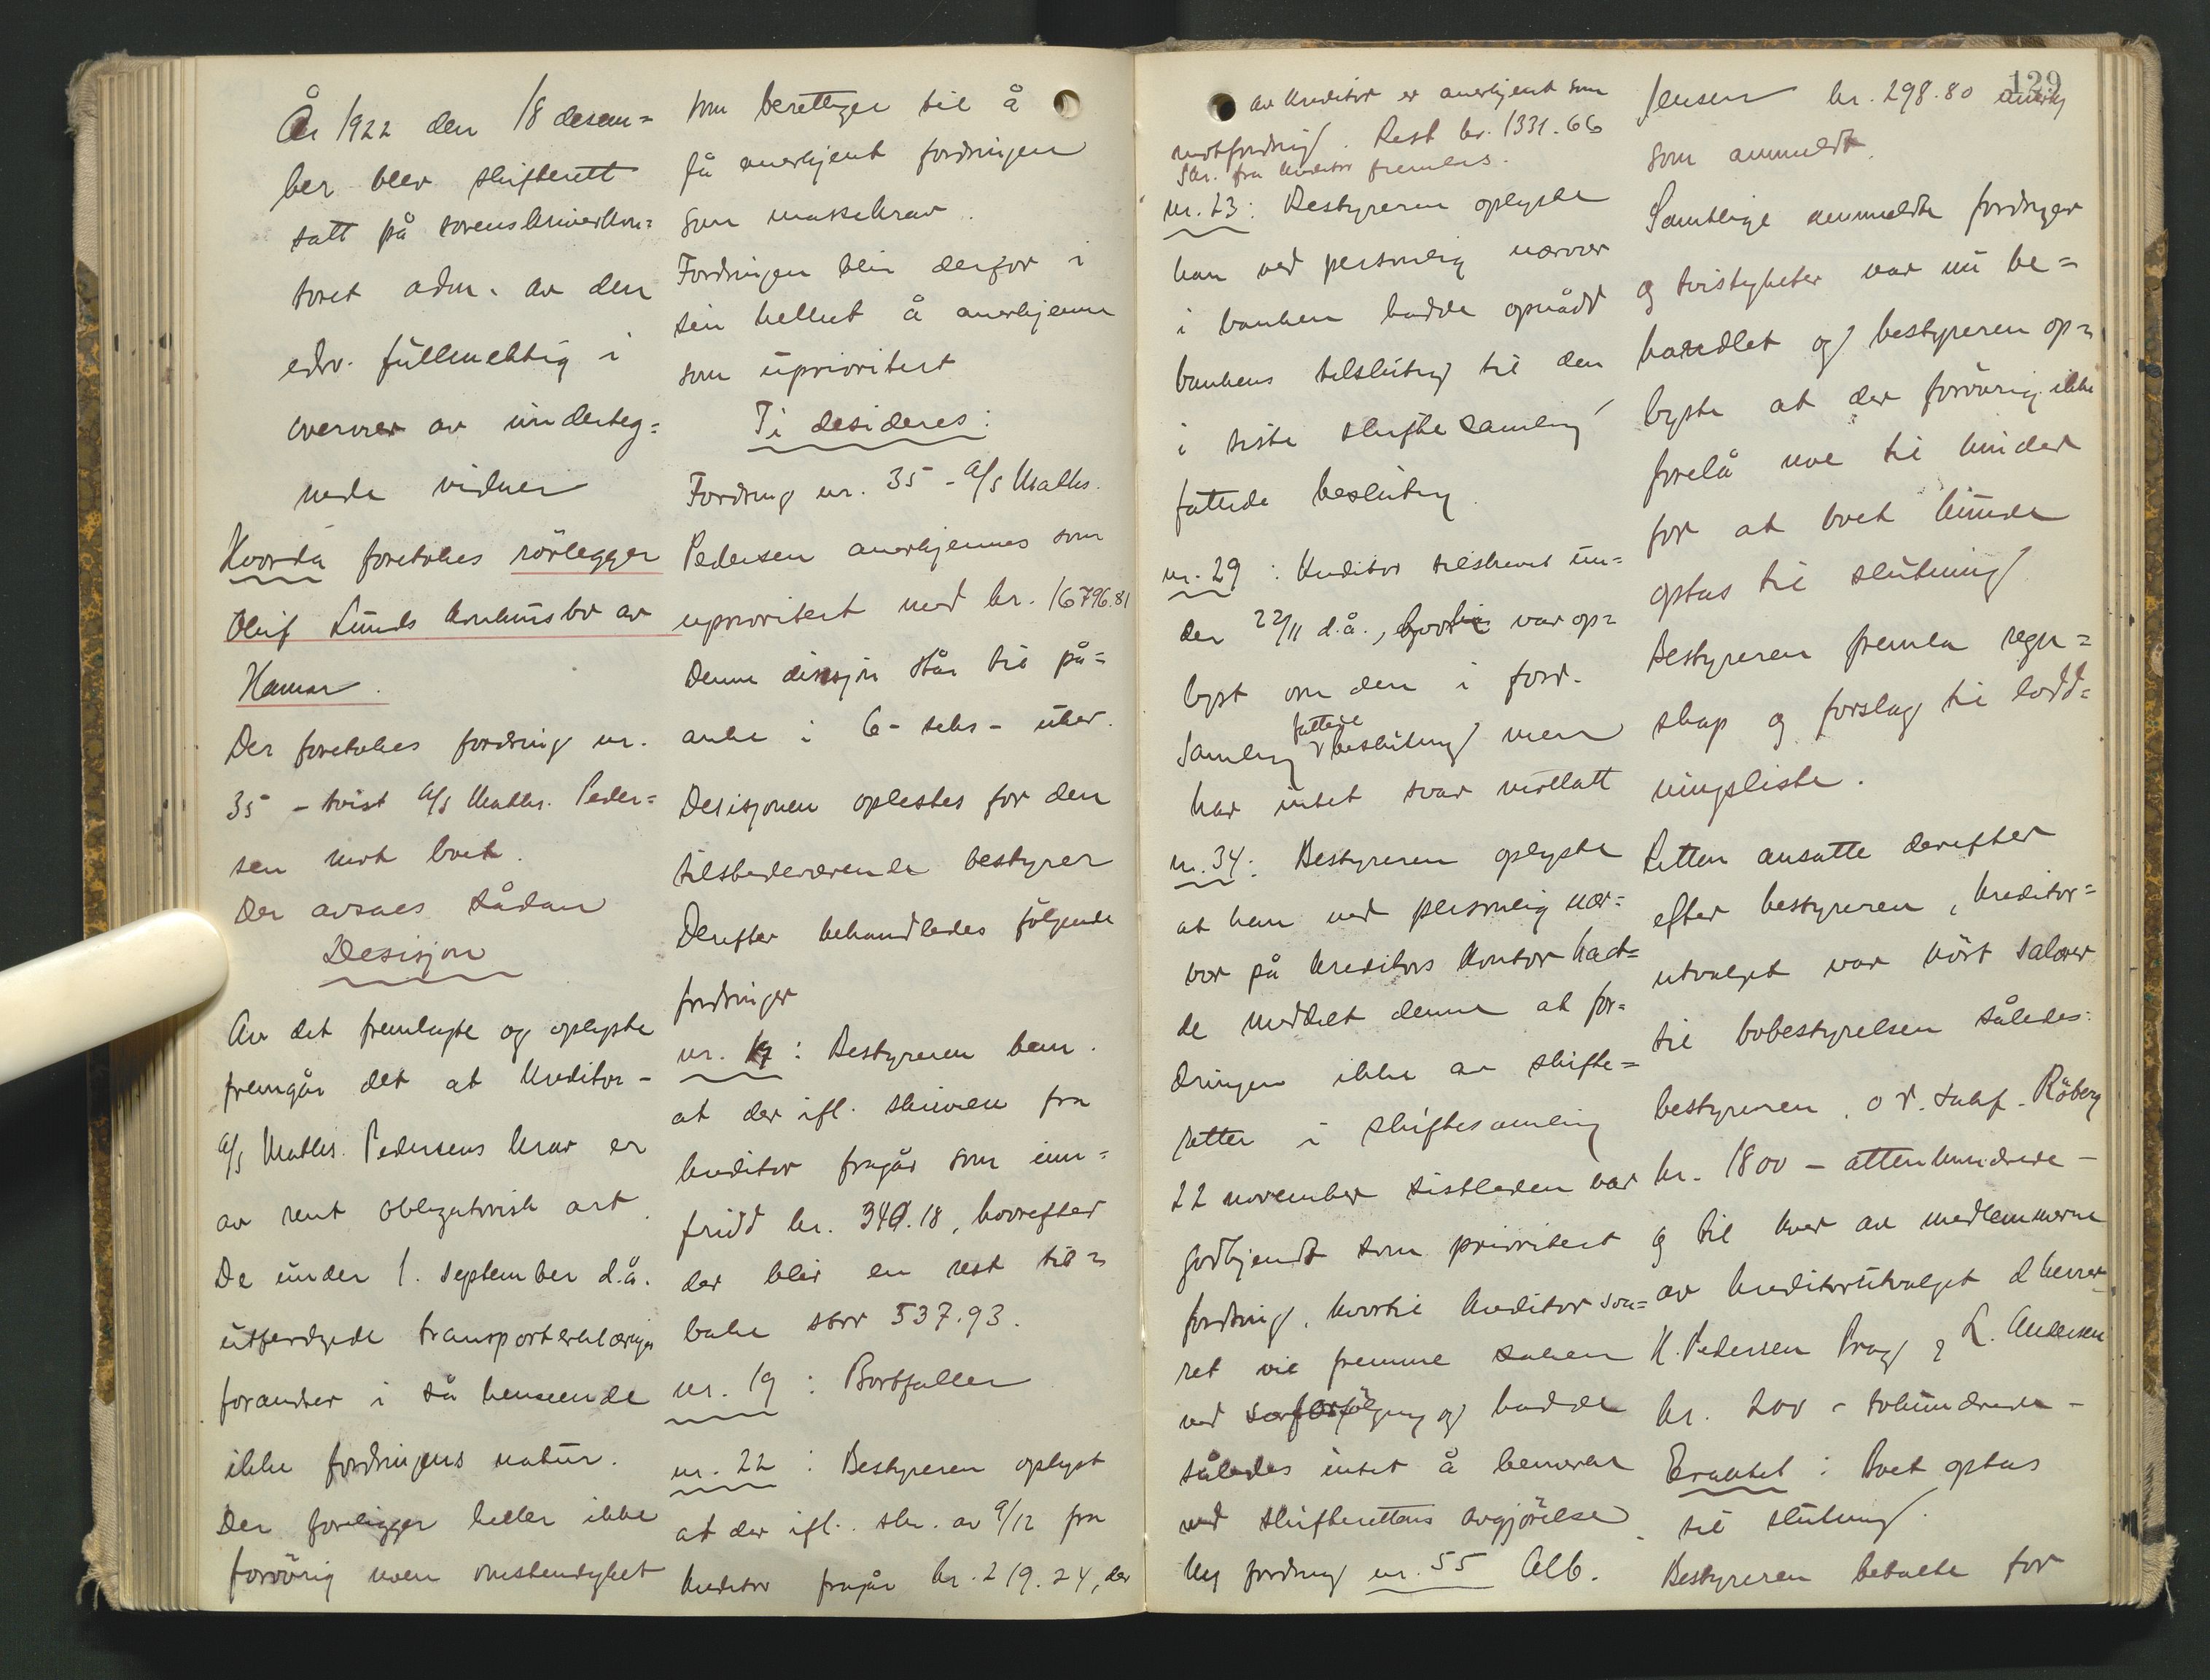 År 1922 den 18 desem=
ber blev skifterett
satt på sorenskriverkon=
toret adm. av den
edsv. fullmektig i
overvær av underteg=
nede vidner
Hvorda foretokes rörlegger
Oluf Lunds konkursbo av
Hamar.
Der foretokes fordring nr.
35 - tvist A/S Maths. Peder=
sen mot boet.
Der avsaes sådan
Desisjon
Av det fremlagte og oplyste
fremgår det at kreditor-
A/S Maths. Pedersens krav er
av rent obligatorisk art.
De under 1. september d.å.
utferdigede transporterklæringer
forandrer i så henseende
ikke fordringens natur.
Der foreligger heller ikke
forövrig noen omstendighet
som berettiger til å
få anerkjent fordringen
som massekrav.
Fordringen blir derfor i
sin helhet å anerkjenne
som uprioritert
Ti desideres:
Fordring nr. 35 - A/S Maths.
Pedersen anerkjennes som
uprioritert med kr. 16796.81
Denne desisjon står til på=
anke i 6 - seks - uker.
Desisjonen oplestes for den
tilstedeværende bestyrer
Derefter behandledes følgende
fordringer
nr. 17 : Bestyreren bem.
at der ifl. skrivelse fra
kreditor fragår som inn=
fridd kr. 340.18, hvorefter
der blir en rest til=
bake stor 537.93.
nr. 19 : Bortfaller
nr. 22 : Bestyreren oplyst
at der ifl. skr. av 9/12 fra
kreditor fragår kr. 219.24, der
av kreditor er anerkjent som
motfordring. Rest kr. 1331.66
Skr. fra kreditor fremlæs.
nr. 23: Bestyreren oplyste
han ved personlig nærvær
i banken hadde opnådd
bankens tilslutning til den
i siste skiftesamling
fattede beslutning.
nr. 29 : Kreditor tilskrevet un=
der 22/11 d.å., var op=
lyst om den i forr.
samling fattede beslutning men
har intet svar mottatt
nr. 34: Bestyreren oplyste
at han ved personlig nær=
vær på kreditors kontor had=
de meddelt denne at for=
dringen ikke av skifte=
retten i skiftesamling
22 november sistleden var
godkjendt som prioritert
fordring, hvortil kreditor sva=
ret vil fremme saken
ved og hadde
således intet å bemerke
ved skifterettens avgjörelse.
Ny fordring nr. 55 Alb.
129
Jensen kr. 298.80 anerkj
som anmeldt.
Samtlige anmeldte fordringer
og tvistigheter var nu be=
handlet og bestyreren op=
lyste at der forövrig ikke
forelå noe til hinder
for at boet kunde
optas til slutning
Bestyreren fremla regn=
skap og forslag til lodd=
ningsliste.
Retten ansatte derefter
efter bestyreren, kreditor=
utvalget var hört salærer
til bobestyrelsen således:
bestyreren, o.r.sakf. Råberg
kr. 1800 - attenhundrede -
og til hver av medlemmerne
av kreditorutvalget d'herrer
H. Pedersen Brag og L. Andersen
kr. 200 - tohundrede -
Eraktet : Boet optas
til slutning.
Bestyreren betalte for